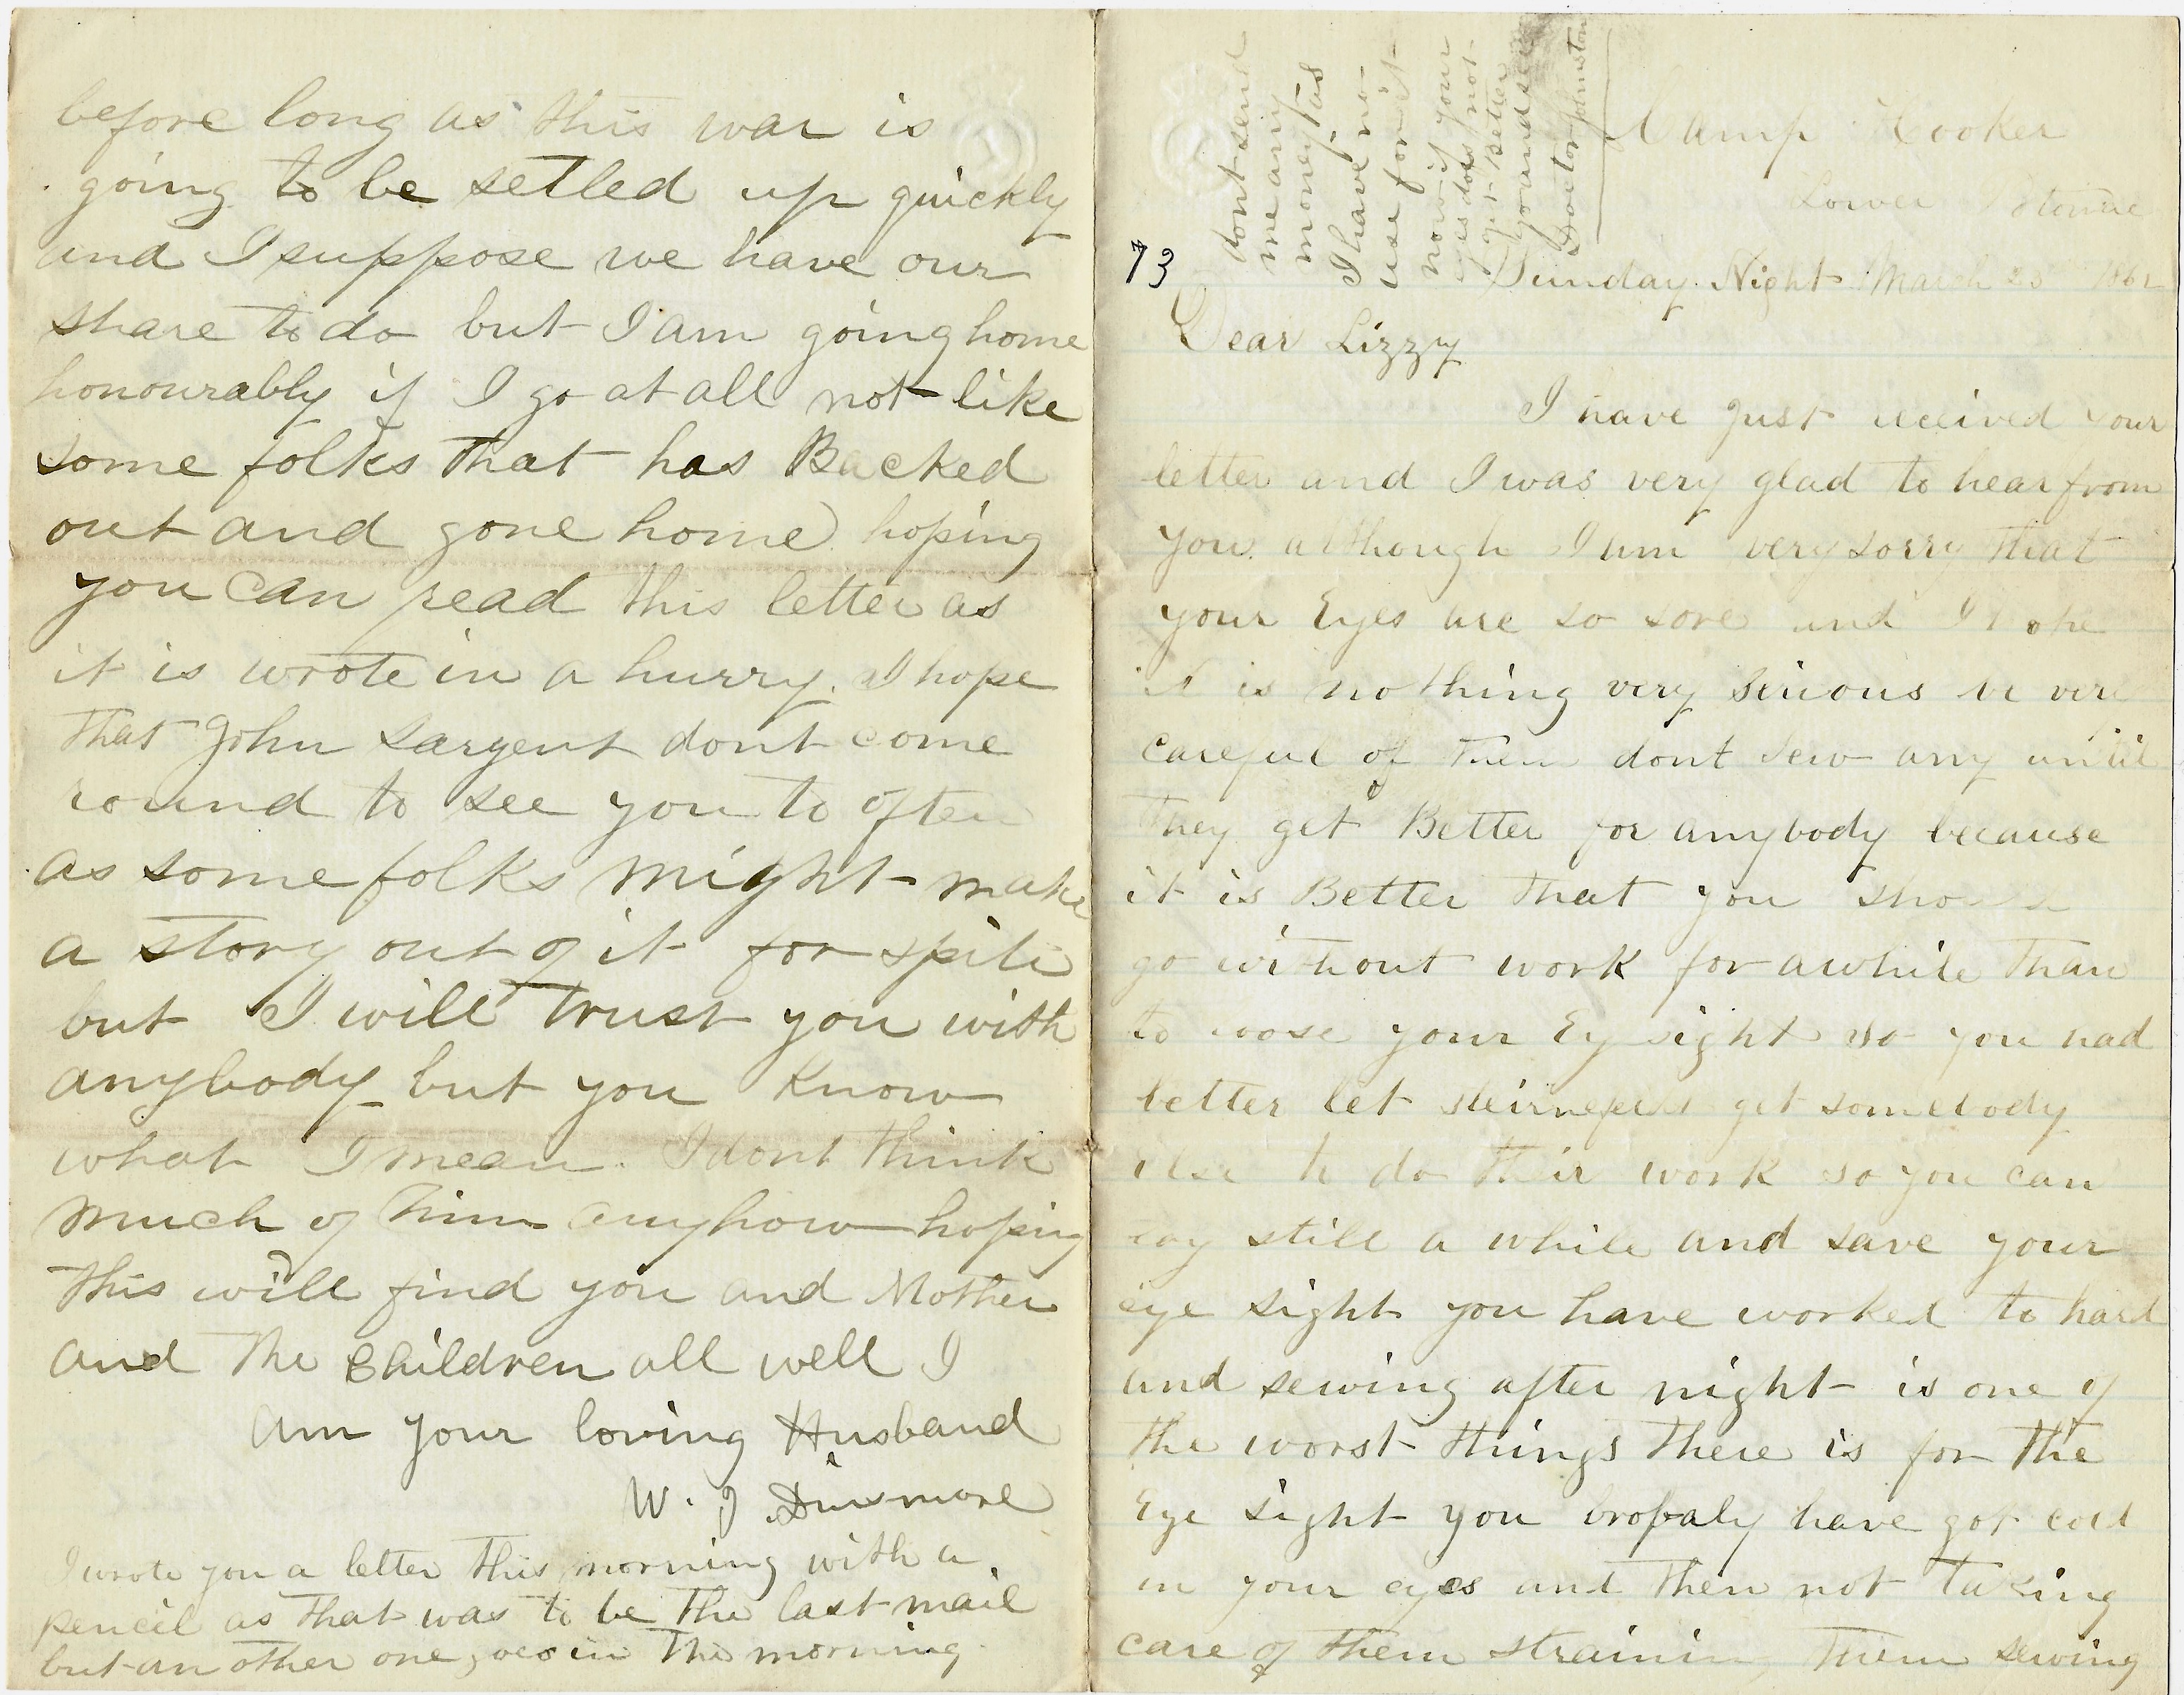 Camp Hooker
Lower Potomac
Sunday Night March 23 1862
73
Dear Lizzy
I have just received your
letter and I was very glad to hear from
you. although I am very sorry that
your Eyes are so sore and I hope
it is nothing very serious be very
careful of them dont sew any until
they get Better for anybody because
it is Better that you should
go without work for awhile than
to loose your Ey sight so you had
better let get somebody
else to do their work so you can
lay still a while and save your
eye sight you have worked to hard
and sewing after night is one of
the worst things there is for the
Eye sight you propaly have got cold
in your eyes and then not taking
care of them straining them sewing
dont send
me any
money as
I have no
use for it
now if your
eyes does not
get Better
you and see
Doctor Johnston
before long as this war is
going to be setled up quickly
and I suppose we have our
share to do but I am going home
honourably if I go at all not like
some folks that has Backed
out and gone home hoping
you can read this letter as
it is wrote in a hurry. I hope
that John Sargent dont come
round to see you to often
as some folks might make
a story out of it for spite
but I will trust you with
anybody but you know
what I mean. I dont think
much of him anyhow hoping
this will find you and Mother
and the children all well I
am your loving Husband
W. J Dinsmore
I wrote you a letter this morning with a
pencil as that was to be the last mail
but an other one goes in the morning